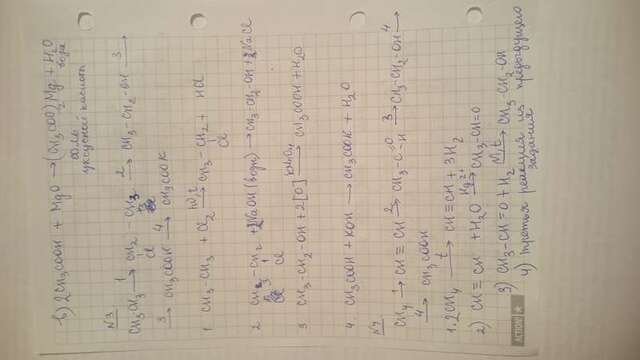 в) 2CH3COOH + MgO → (CH3COO)2Mg + H2O
соль вода
уксусной кислоты
N3
CH3CH3 →1 CH2 - CH3 →2 CH3-CH2-OH →3
Cl
→3 CH3COOH →4 CH3COOK
1 CH3-CH3 + Cl2 →hν,t CH3-CH2 + HCl
Cl
2 CH3-CH2 + NaOH (водн) → CH3-CH2-OH + NaCl
Cl
3 CH3-CH2-OH + 2[O] →KMnO4 CH3COOH + H2O
4. CH3COOH + KOH → CH3COOK + H2O
N4
CH4 →1 CH≡CH →2 CH3-C=O →3 CH3-CH2-OH →4
H
→4 CH3COOH
1. 2CH4 →t CH≡CH + 3H2
2) CH≡CH + H2O →Hg2+ CH3-CH=O
3) CH3-CH=O + H2 →Ni,t CH3-CH2-OH
4) третья реакция из предыдущего
задания
ACTION!